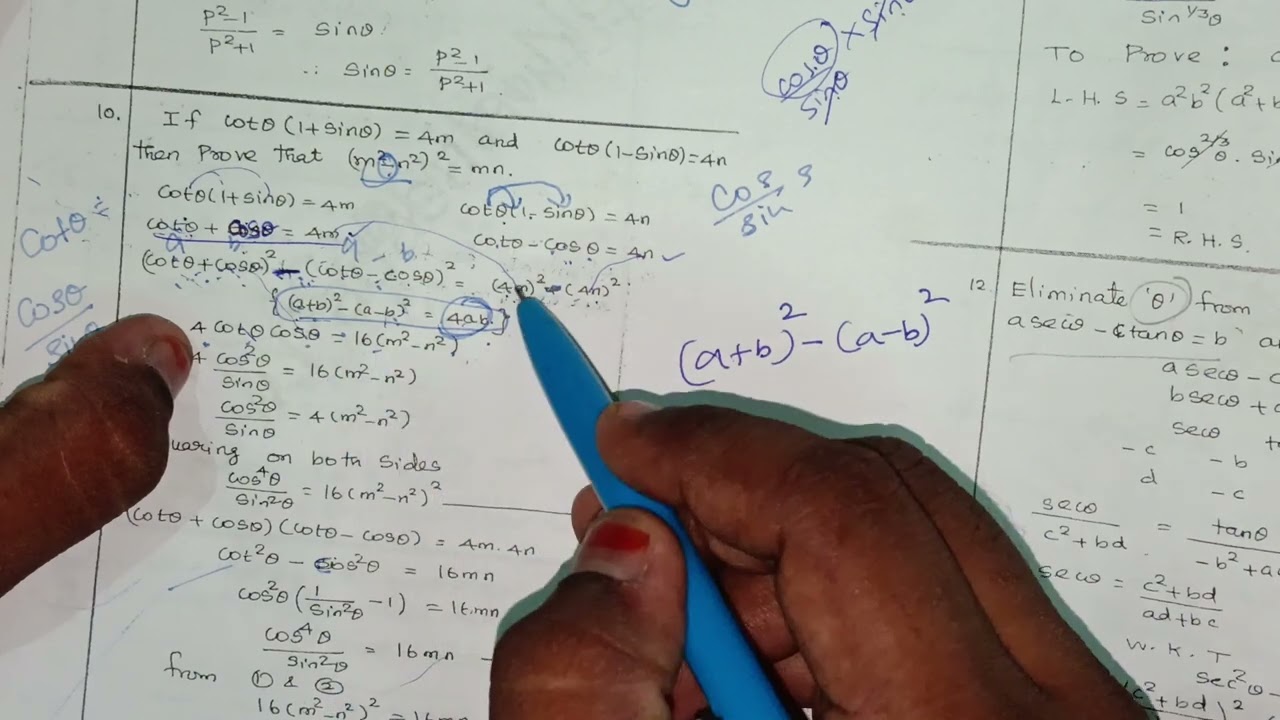 P²-1 / P²+1 = sinθ.
∴ sinθ = P²-1 / P²+1.
10. If cotθ(1+sinθ) = 4m and cotθ(1-sinθ)=4n
then Prove that (m²-n²)² = mn.
cotθ(1+sinθ) = 4m
cotθ + cosθ = 4m
a b a - b
(cotθ+cosθ)² - (cotθ-cosθ)² = (4m)² - (4n)²
{(a+b)²-(a-b)² = 4ab}
4 cotθ cosθ = 16(m²-n²)
4 cos²θ / sinθ = 16(m²-n²)
cos²θ / sinθ = 4(m²-n²)
on both sides
cos⁴θ / sin²θ = 16(m²-n²)²
(cotθ + cosθ)(cotθ - cosθ) = 4m.4n
cot²θ - cos²θ = 16mn
cos²θ(1/sin²θ -1) = 16mn
cos⁴θ / sin²θ = 16mn
from ① & ②
16(m²-n²)² = 16mn
cotθ(1-sinθ) = 4n
cotθ - cosθ = 4n
cotθ =
cosθ
cosθ / sinθ ×
cos / sin
(a+b)² - (a-b)²
sin^1/3 θ
To Prove:
L.H.S = a²b²(a²+b
= cos^2/3 θ.
= 1
= R.H.S.
12. Eliminate 'θ' from
a secθ - c tanθ = b
a secθ - c
b secθ +
secθ
-c -b
d -c
secθ / c²+bd = tanθ / -b²+a
secθ = c²+bd / ad+bc
W.K.T
sec²θ -
c²+bd ²